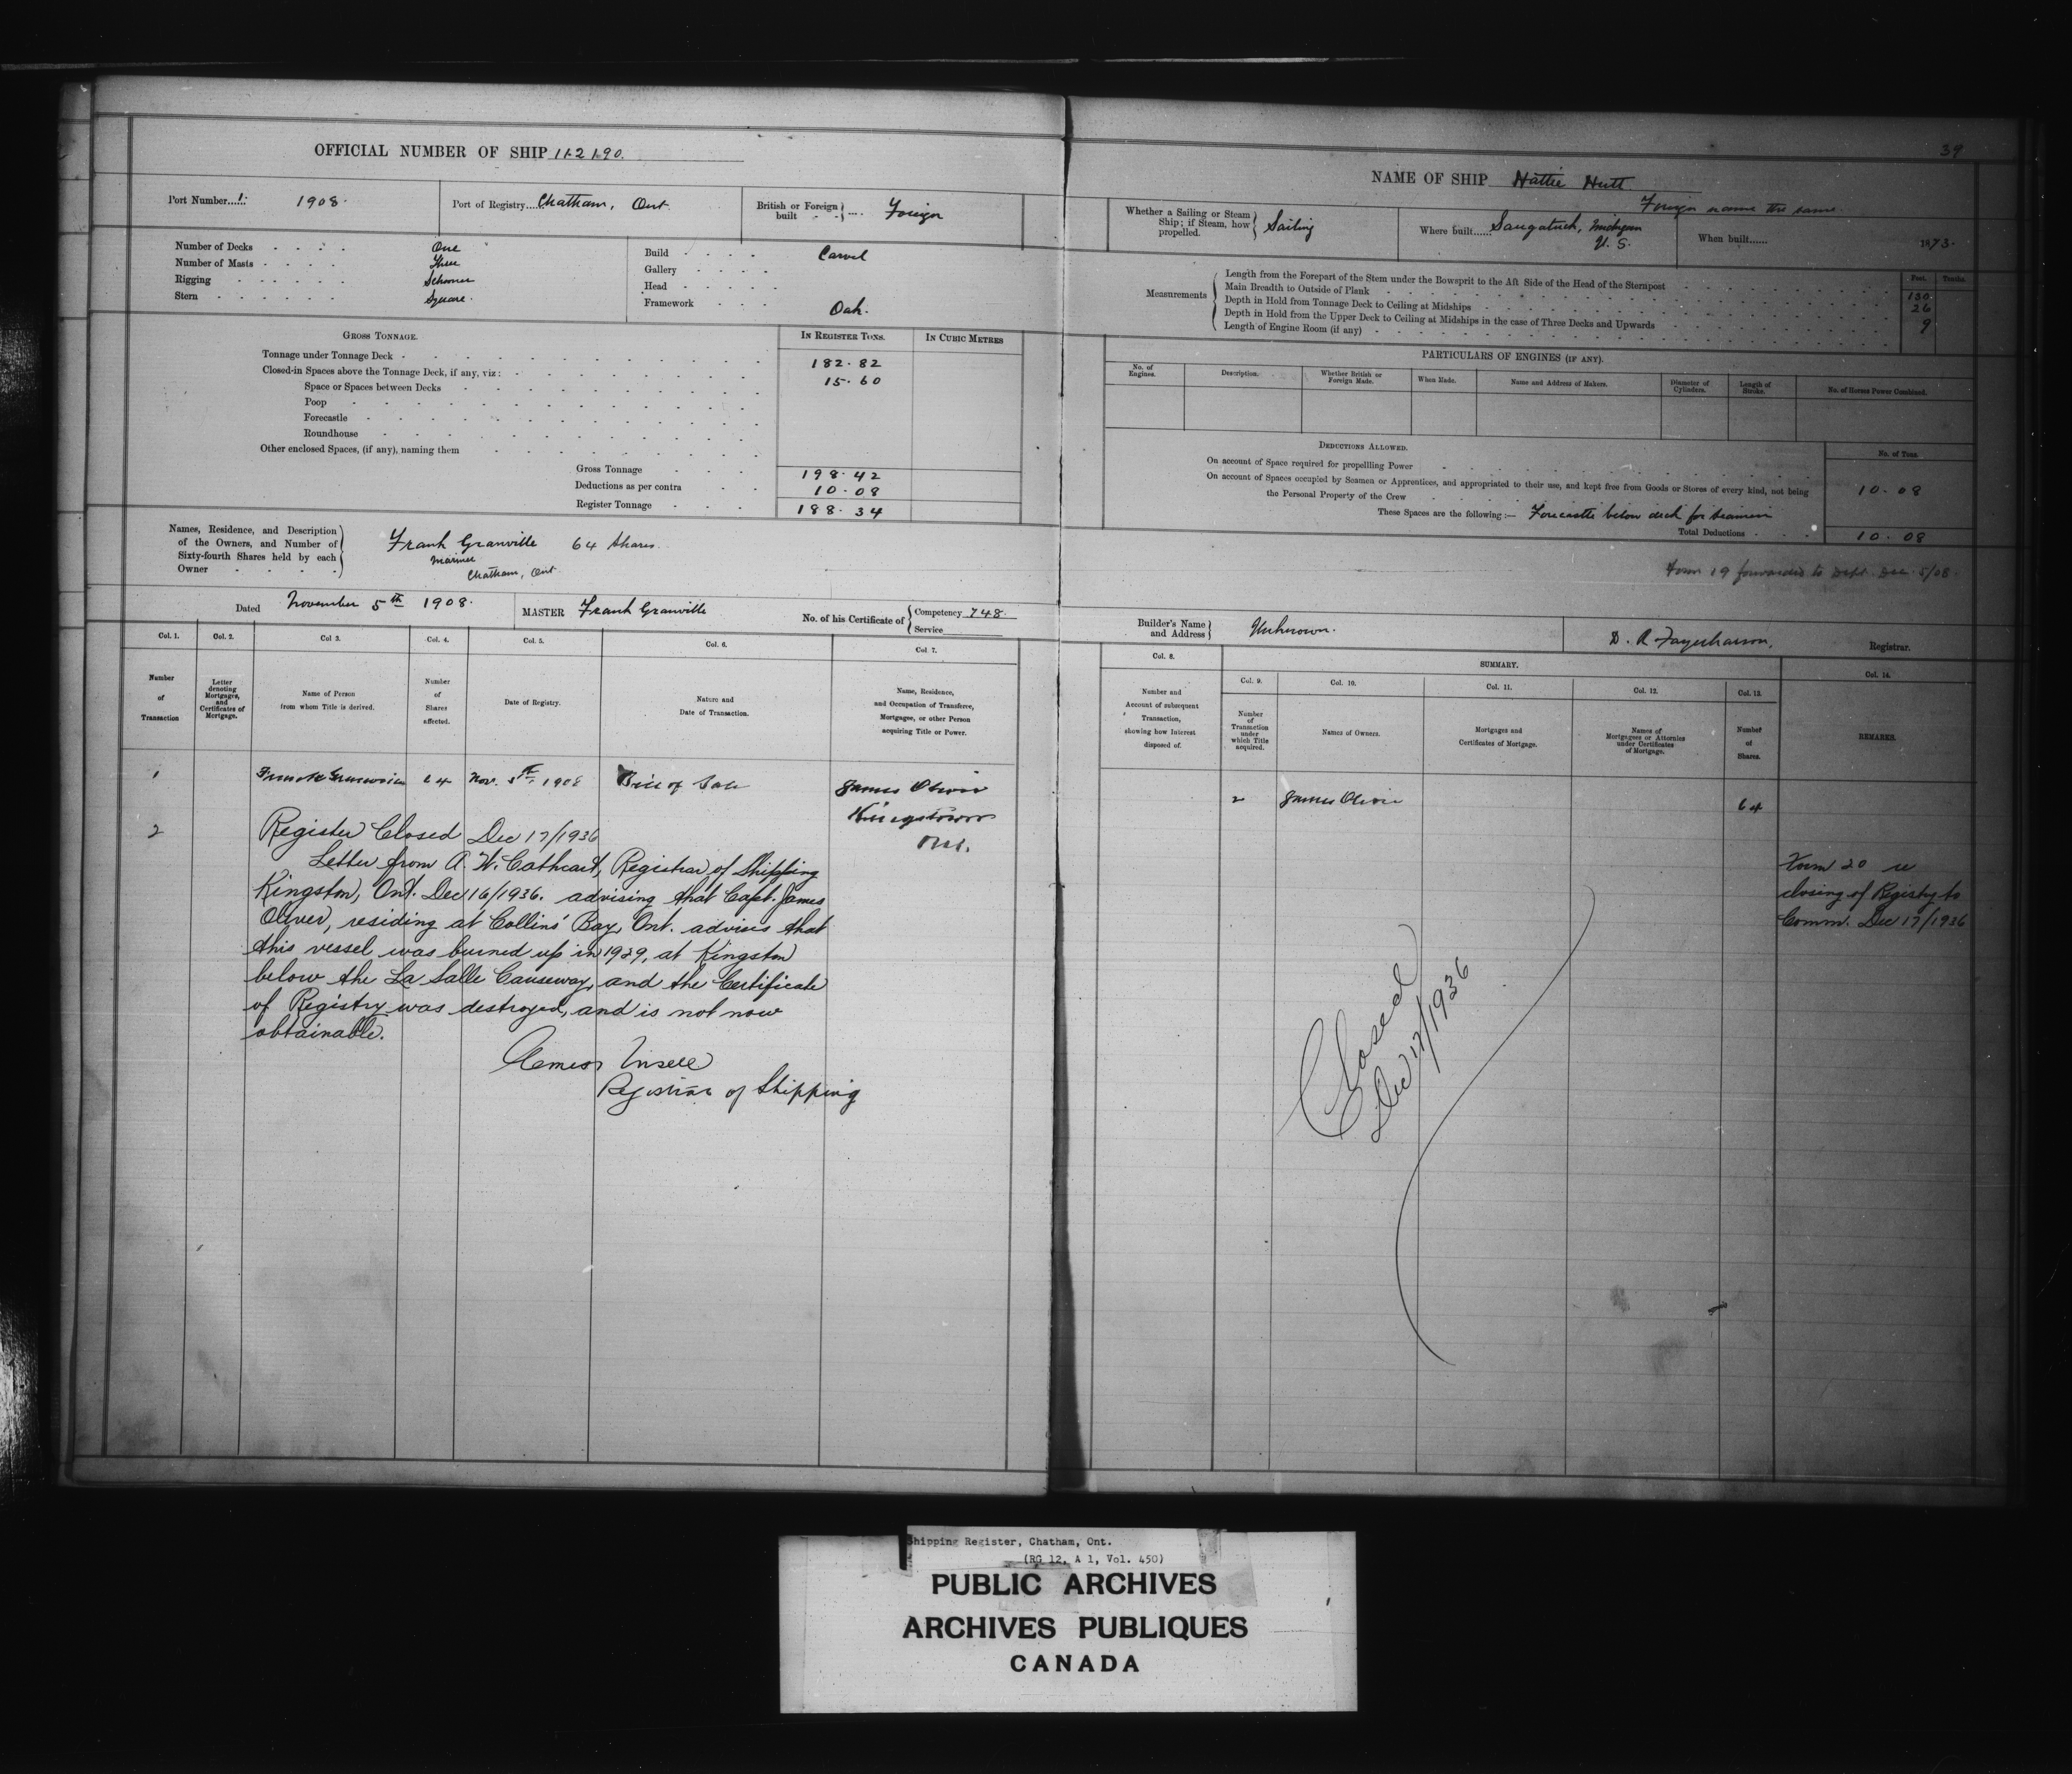 OFFICIAL NUMBER OF SHIP 112190.
Port Number 1: 1908.
Port of Registry Chatham, Ont
British or Foreign built Foreign
Number of Decks One
Number of Masts Three
Rigging Schooner
Stern Square.
Build Carvel
Gallery
Head
Framework Oak.
GROSS TONNAGE.
IN REGISTER TONS.
IN CUBIC METRES
Tonnage under Tonnage Deck 182.82
Closed-in Spaces above the Tonnage Deck, if any, viz:
Space or Spaces between Decks 15.60
Poop
Forecastle
Roundhouse
Other enclosed Spaces, (if any), naming them
Gross Tonnage 198.42
Deductions as per contra 10.08
Register Tonnage 188.34
Names, Residence, and Description
of the Owners, and Number of
Sixty-fourth Shares held by each
Owner
Frank Granville 64 Shares.
Mariner
Chatham, Ont
Dated November 5th 1908.
MASTER Frank Granville
No. of his Certificate of Competency 748.
Service
Col. 1. Col. 2. Col 3. Col. 4. Col. 5. Col. 6. Col. 7.
Number of Transaction
Letter denoting Mortgages, and Certificates of Mortgage.
Name of Person from whom Title is derived.
Number of Shares affected.
Date of Registry.
Nature and Date of Transaction.
Name, Residence, and Occupation of Transferee, Mortgagee, or other Person acquiring Title or Power.
1 64 Nov. 5th 1908 Bill of Sale James Oliver
Kingston
Ont.
2 Register Closed Dec 17/1936
Letter from A. W. Cathcart, Registrar of Shipping
Kingston, Ont. Dec 16/1936. advising that Capt. James
Oliver, residing at Collins' Bay, Ont. advises that
this vessel was burned up in 1929, at Kingston
below the La Salle Causeway, and the Certificate
of Registry was destroyed, and is not now
obtainable.
Registrar of Shipping
39
NAME OF SHIP Hattie Hutt
Foreign name the same.
Whether a Sailing or Steam
Ship; if Steam, how
propelled.
Sailing
Where built Saugatuck, Michigan
U. S.
When built 1873.
Measurements
Feet. Tenths.
Length from the Forepart of the Stem under the Bowsprit to the Aft Side of the Head of the Sternpost 130
Main Breadth to Outside of Plank 26
Depth in Hold from Tonnage Deck to Ceiling at Midships 9
Depth in Hold from the Upper Deck to Ceiling at Midships in the case of Three Decks and Upwards
Length of Engine Room (if any)
PARTICULARS OF ENGINES (IF ANY).
No. of Engines.
Description.
Whether British or Foreign Made.
When Made.
Name and Address of Makers.
Diameter of Cylinders.
Length of Stroke.
No. of Horses Power Combined.
DEDUCTIONS ALLOWED.
No. of Tons
On account of Space required for propelling Power
On account of Spaces occupied by Seamen or Apprentices, and appropriated to their use, and kept free from Goods or Stores of every kind, not being
the Personal Property of the Crew 10.08
These Spaces are the following:— Forecastle below deck for seamen
Total Deductions 10.08
Form 19 forwarded to Dept. Dec. 5/08.
Builder's Name and Address Unknown.
D. R. Registrar.
Col. 8. SUMMARY. Col. 14.
Col. 9. Col. 10. Col. 11. Col. 12. Col. 13.
Number and Account of subsequent Transaction, showing how Interest disposed of.
Number of Transaction under which Title acquired.
Names of Owners.
Mortgages and Certificates of Mortgage.
Names of Mortgagees or Attornies under Certificates of Mortgage.
Number of Shares.
REMARKS.
2 James Oliver 64
Form 20 re
closing of Registry to
Comm. Dec 17/1936
Closed
Dec 17/1936
Shipping Register, Chatham, Ont.
(RG 12, A 1, Vol. 450)
PUBLIC ARCHIVES
ARCHIVES PUBLIQUES
CANADA